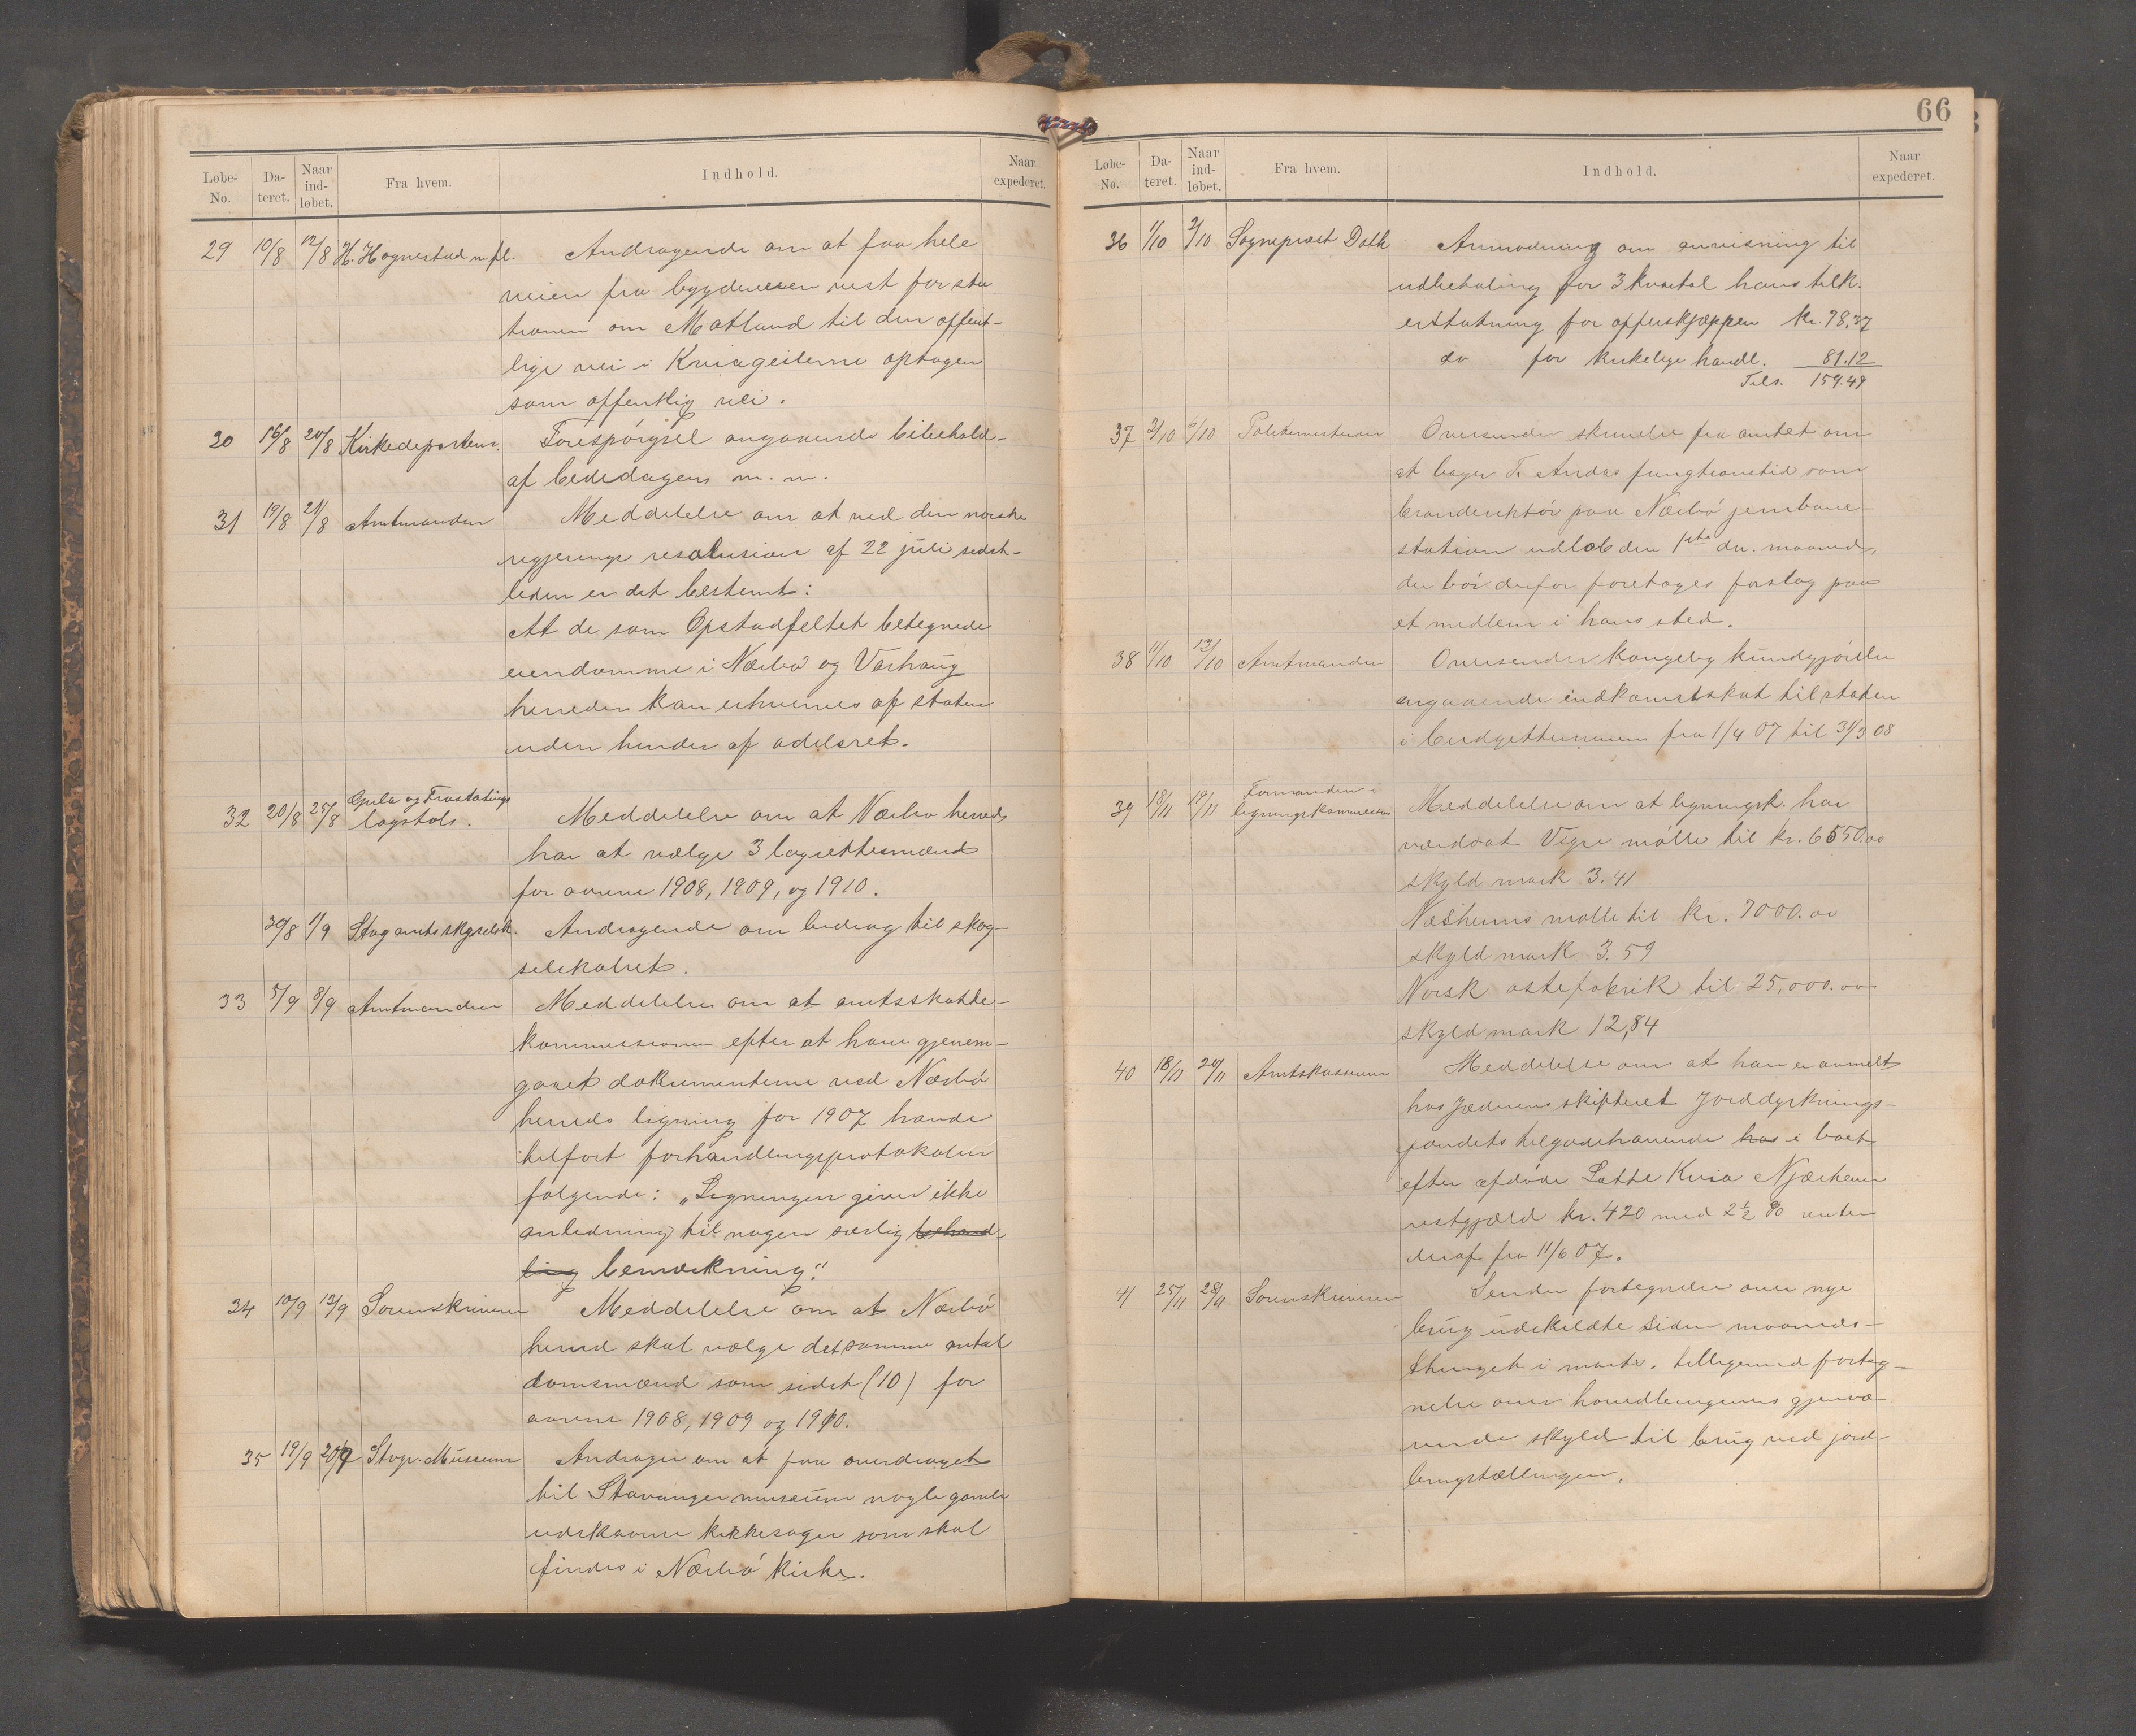 Løbe-No. Da-teret. Naar ind-løbet. Fra hvem. Indhold. Naar expederet.
29 10/8 12/8 H. Hognestad m.fl. Andragende om at faa hele
veien fra bygdeveien vest for sta
tionen om Motland til den offent-
lige vei i Kviageilerne optagen
som offentlig vei.
30 16/8 20/8 Kirkedepartem. Forespörgsel angaaende bibehold-
af bededagen m. m.
31 19/8 21/8 Amtmanden Meddelelse om at ved den norske
regjerings resolusion af 22 juli sidst-
leden er det bestemt:
At de som Opstadfeltet betegnede
eiendomme i Nærbø og Varhaug
herreder kan erhverves af staten
uden hinder af odelsret.
32 20/8 25/8 Gula og Frostatings
lagstols. Meddelelse om at Nærbø herreds
har at vælge 3 lagrettesmænd
for aarene 1908, 1909, og 1910.
30/8 1/9 Stav amts skogselsk. Andragende om bidrag til skog-
selskabet.
33 5/9 8/9 Amtmanden Meddelelse om at amtsskatte-
kommissionen efter at have gjenem-
gaaet dokumenterne ved Nærbø
herreds ligning for 1907 havde
tilført forhandlingsprotokolen
følgende: „Ligningen giver ikke
anledning til nogen særlig behand-
ling bemærkning."
34 10/9 13/9 Sorenskriveren Meddelelse om at Nærbø
herred skal vælge det samme antal
domsmænd som sidst (10) for
aarene 1908, 1909 og 1910.
35 19/9 20/9 Stvgr. Museum Andrager om at faa overdraget
til Stavanger museum nogle gamle
udskaarne kirkesager som skal
findes i Nærbø kirke.
66
Løbe-No. Da-teret. Naar ind-løbet. Fra hvem. Indhold. Naar expederet.
36 1/10 2/10 Sogneprest Dall Anmodning om anvisning til
udbetaling for 3 kvartal hans tilk.
erstatning for offerskjæppen kr. 78,37
do for kirkelige handl. 81.12
Tils. 159.49
37 3/10 6/10 Politimesteren Oversender skrivelse fra amtet om
at bager T. Andas fungtionstid som
branddirektör paa Nærbø jernbane-
station udlöb den 1ste dn. maaned,
der bör derfor foretages forslag paa
et medlem i hans sted.
38 11/10 12/10 Amtmanden Oversender kongelig kundgjörelse
angaaende indkomstskat til staten
i budgetterminen fra 1/4 07 til 31/3 08
39 18/11 19/11 Formanden i
ligningskommission Meddelelse om at ligningsk. har
værdsat Vigre mölle til kr. 6550.00
skyld mark 3.41
Næsheims mölle til kr. 7000.00
skyld mark 3.59
Norsk ostefabrik til 25,000.00
skyld mark 12,84
40 18/11 20/11 Amtskasseren Meddelelse om at han er anmelt
hos Jæderens skifteret Jorddyrknings-
fondets tilgodehavende hos i boet
efter afdøde Lotte Kvia Njærheim
restgjæld kr. 420 med 2½ % renter
deraf fra 11/6 07.
41 25/11 28/11 Sorenskriveren Sender fortegnelse over nye
brug udskildte siden maaneds-
thinget i marts. tilligemed forteg-
nelse over hovedbrugenes gjenvæ
rende skyld til brug ved jord-
brugstællingen.